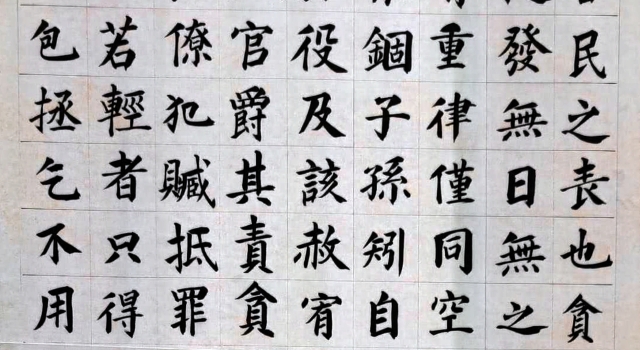 民之表也貪
發無日無之
重律僅同空
錮子孫矧自
役及該赦宥
官爵其責貪
僚犯贓抵罪
若輕者只得
包拯乞不用